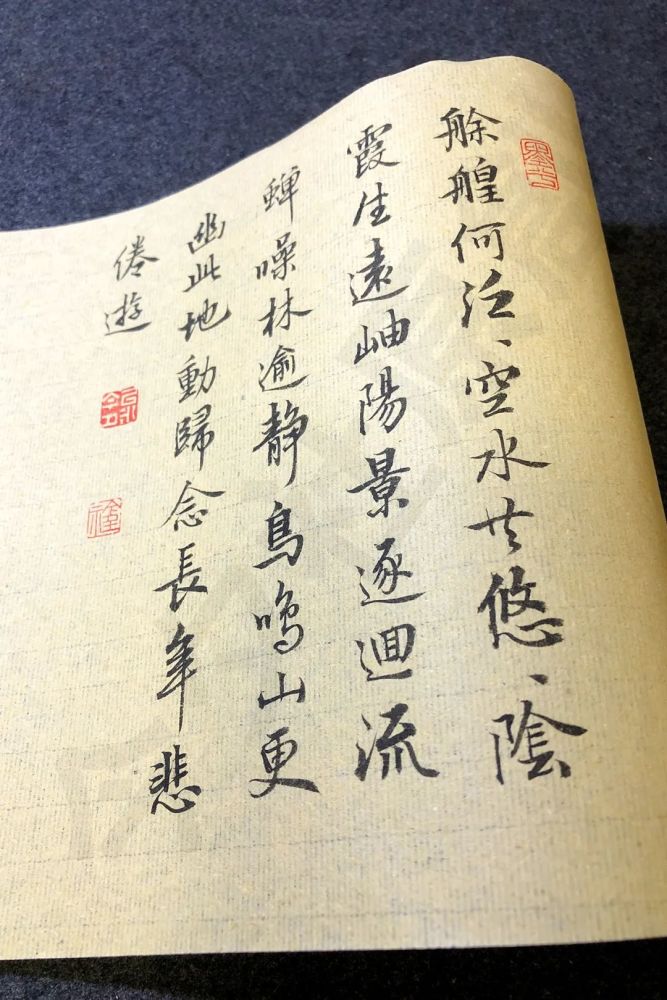 艅艎何泛、空水共悠、陰
霞生遠岫陽景逐迴流
蟬噪林逾静鳥鳴山更
幽此地動歸念長年悲
倦遊